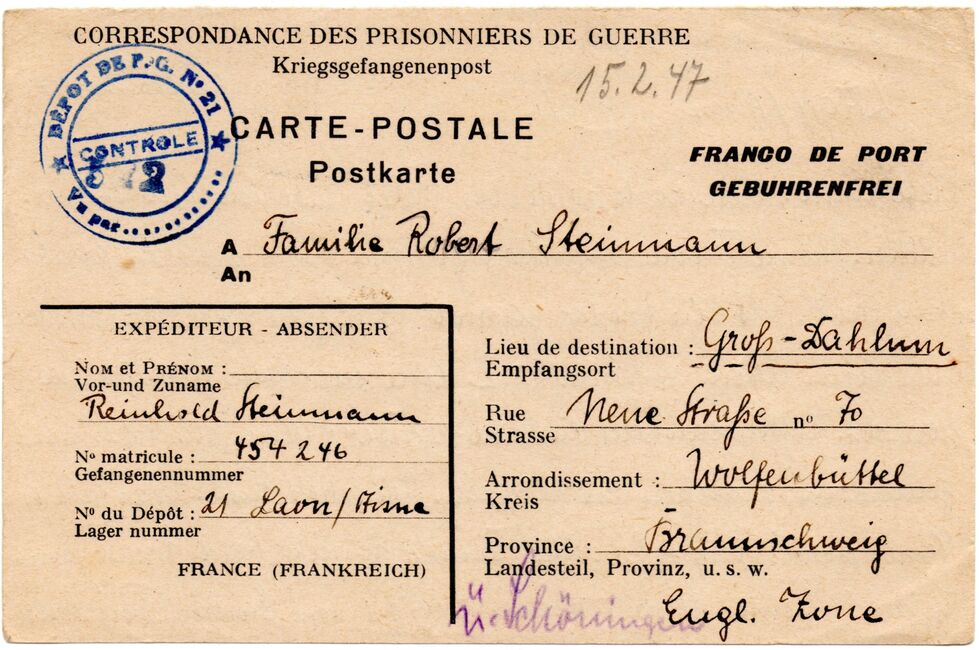 CORRESPONDANCE DES PRISONNIERS DE GUERRE
Kriegsgefangenenpost
15.2.47
DÉPOT DE P.G. N° 21
CONTROLE
Vu par..........
CARTE-POSTALE
Postkarte
FRANCO DE PORT
GEBUHRENFREI
A Familie Robert Steinmann
An
EXPÉDITEUR - ABSENDER
NOM et PRÉNOM :
Vor-und Zuname
Reinhold Steinmann
N° matricule : 454246
Gefangenennummer
N° du Dépôt : 21 Laon/Aisne
Lager nummer
FRANCE (FRANKREICH)
Lieu de destination : Groß-Dahlum
Empfangsort
Rue Neue Straße n° 70
Strasse
Arrondissement : Wolfenbüttel
Kreis
Province : Braunschweig
Landesteil, Provinz, u. s. w.
Engl. Zone
ü. Schöningen